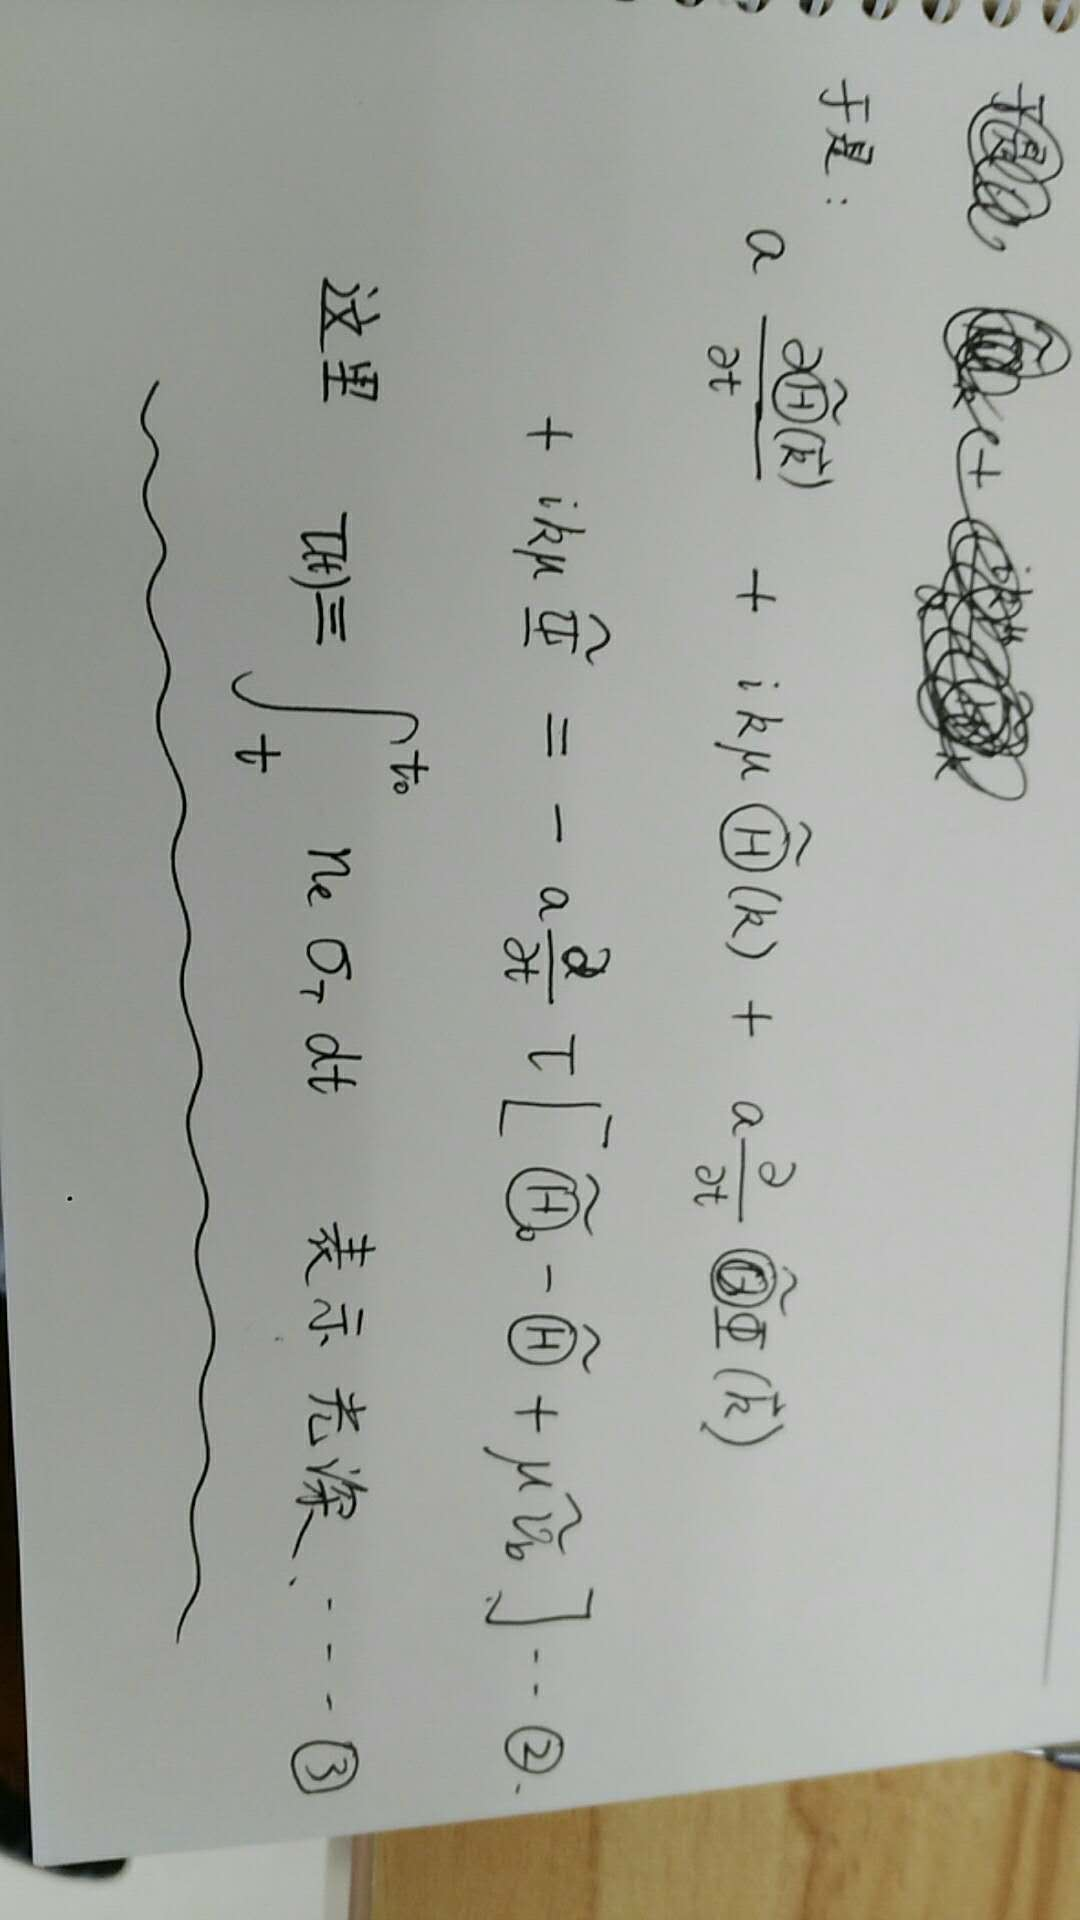 于是:
a ∂Θ̃(k⃗)/∂t + ikμ Θ̃(k) + a ∂/∂t Φ̃(k⃗)
+ ikμ Ψ̃ = - a ∂/∂t τ [Θ̃₀ - Θ̃ + μ ṽ_b] --- ②.
这里 τ(t) ≡ ∫_t^{t₀} n_e σ_T dt 表示光深 ---- ③